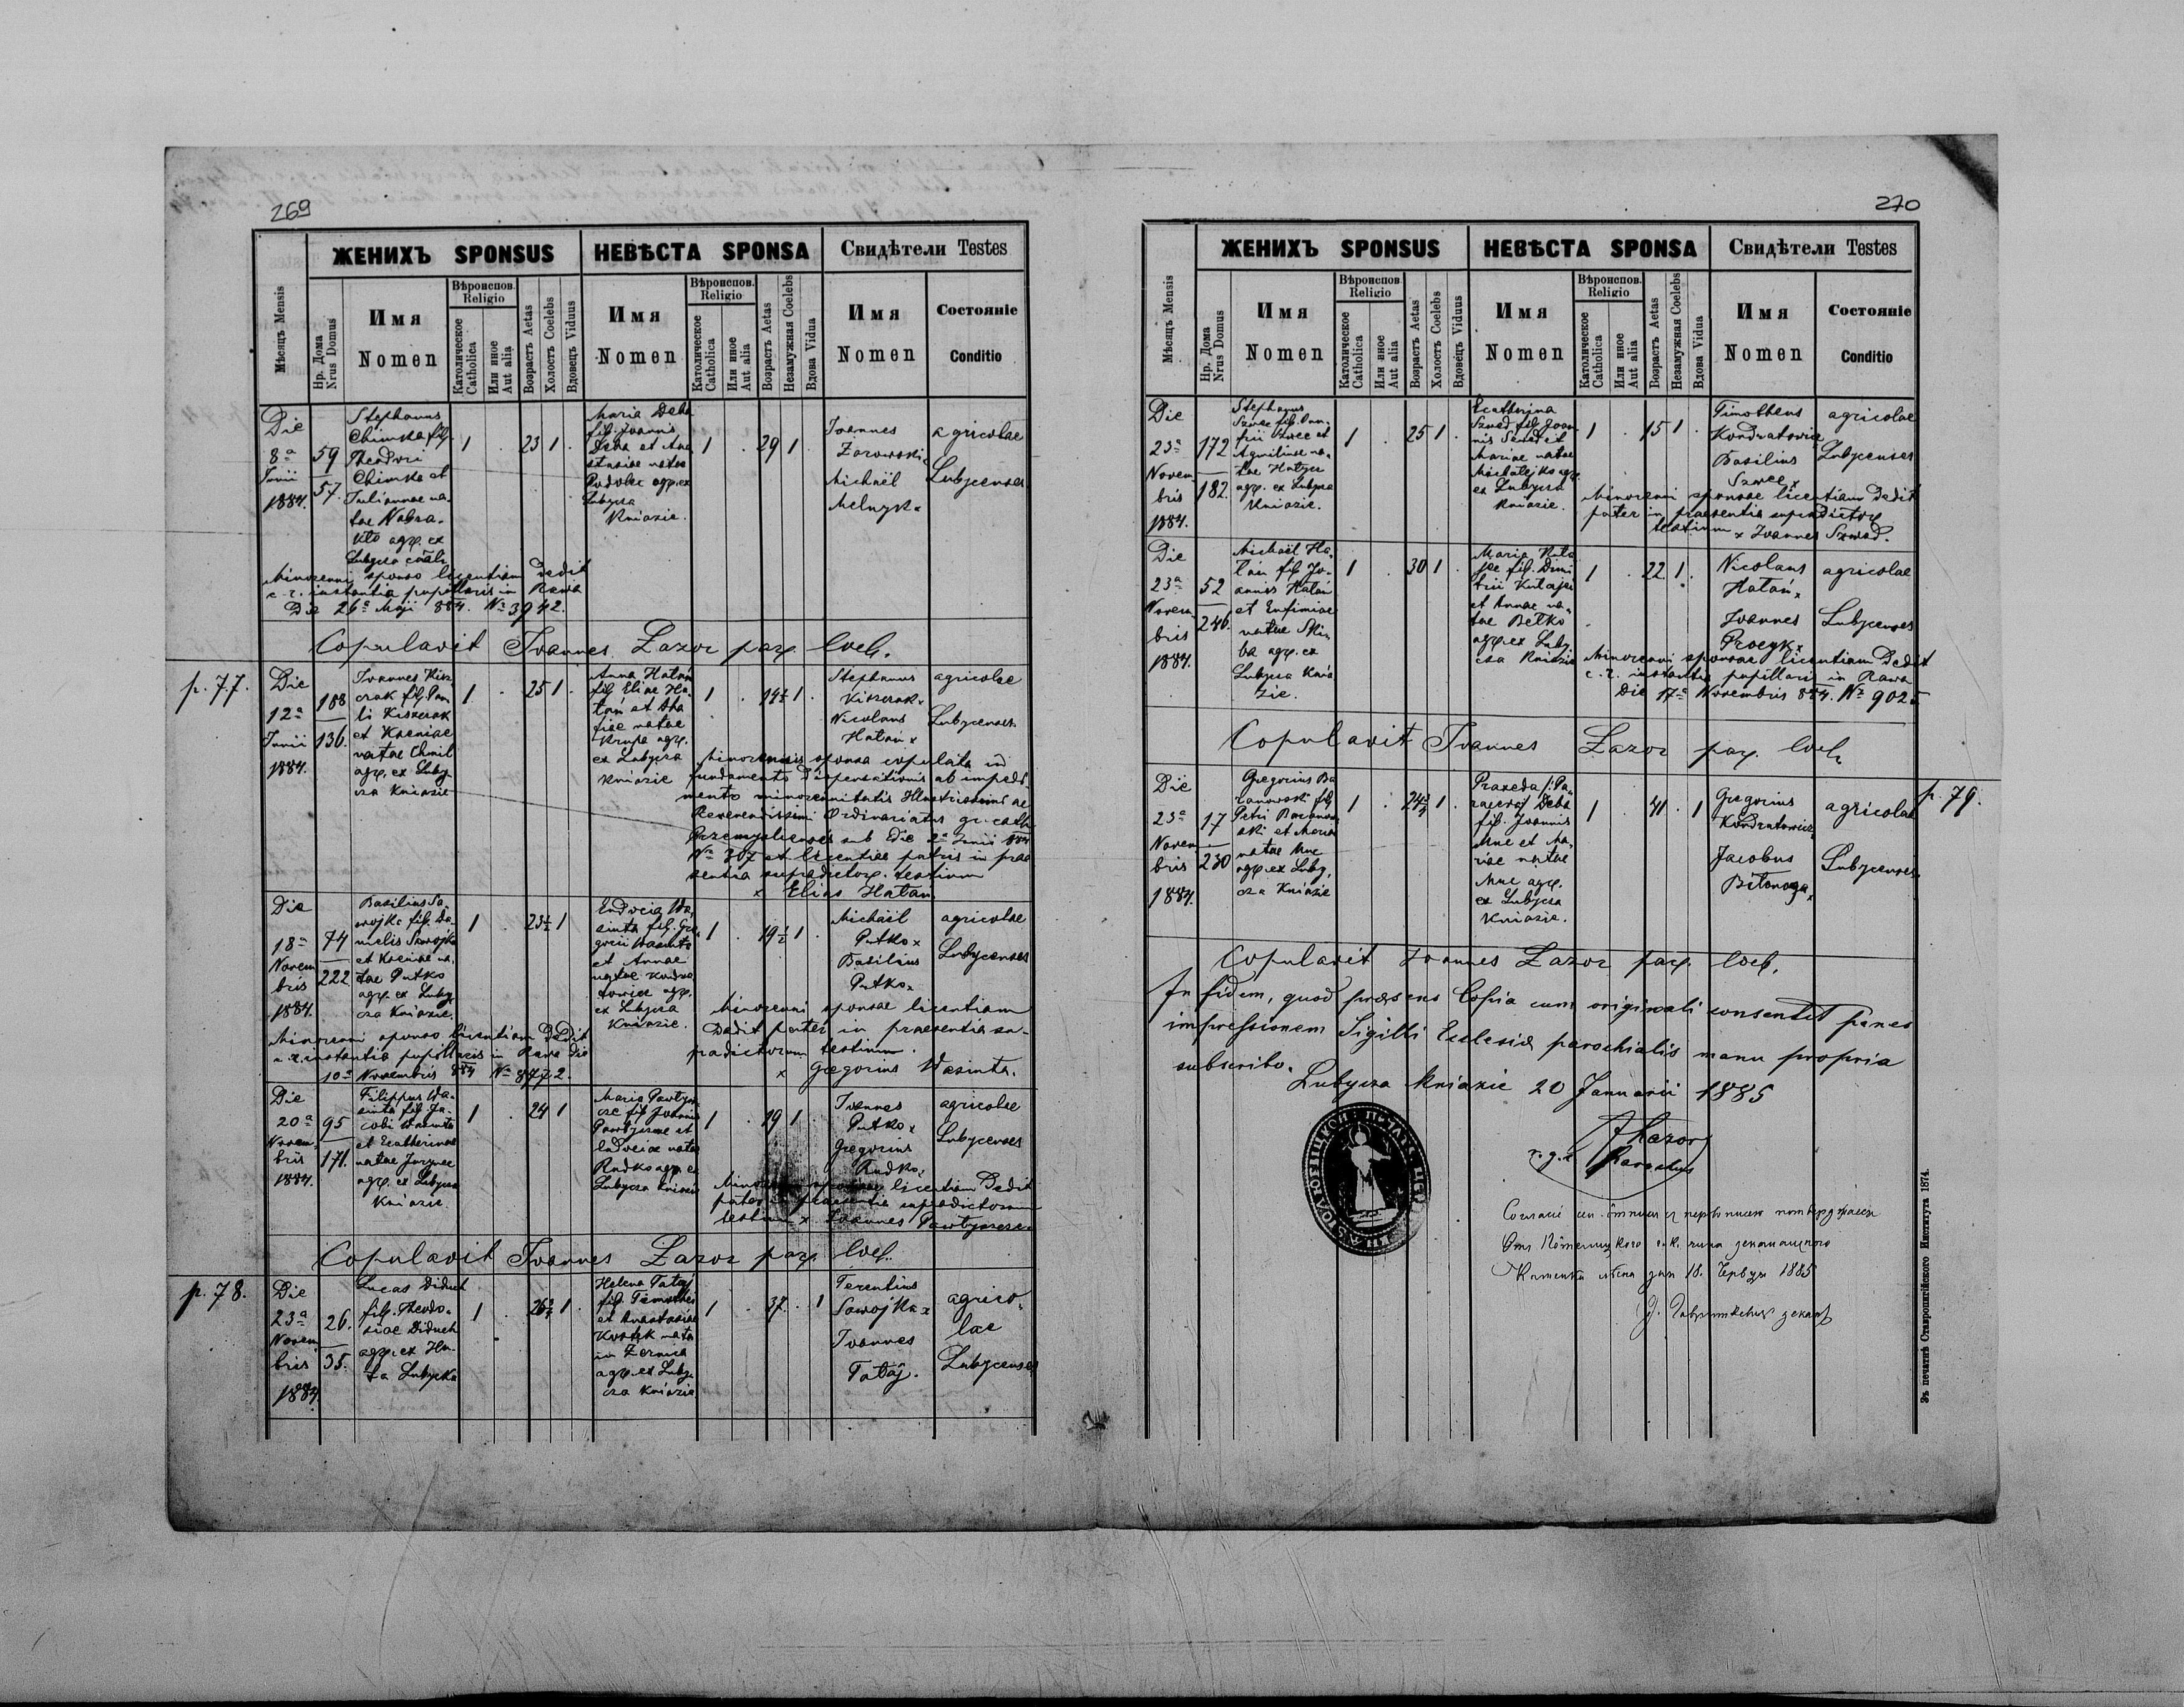 269
ЖЕНИХЪ SPONSUS
НЕВѢСТА SPONSA
Свидѣтели Testes
Мѣсяцъ Mensis
Нр. Дома
Nrus Domus
Имя
Nomen
Вѣроиспов.
Religio
Католическое
Catholica
Или иное
Aut alia
Возрастъ Aetas
Холостъ Coelebs
Вдовецъ Viduus
Имя
Nomen
Вѣроиспов.
Religio
Католическое
Catholica
Или иное
Aut alia
Возрастъ Aetas
Незамужная Coelebs
Вдова Vidua
Имя
Nomen
Состояніе
Conditio
Die
8ª
Junii
1884.
59
57.
Stephanus
Chimka fil.
Theodori
Chimka et
Juliannae na-
tae
agr. ex
Lubycza
1 . 23 1 .
Maria Deba
fil. Joannis
Deba et Ana
stasiae natae
agr. ex
Lubycza
Kniazie.
1 . 29 1
Joannes
Zarowski
Michaël
Melnyk x
agricolae
Lubycenses
Minorenni sponso licentiam dedit
c. r. instantia pupillaris in Rawa
Die 26ª Maji 884. Nº 3942.
Copulavit Joannes Lazor par. loci.
p. 77.
Die
12ª
Junii
1884.
188
136.
Joannes Kisz
czak fil. Pau
li Kiszczak
et Xeniae
natae Chmil
agr. ex Luby
cza Kniazie
1 . 25 1 .
Anna Hatan
fil. Eliae Ha-
tan et Aha
fiae natae
Krupa agr.
ex Lubycza
Kniazie
1 . 14½ 1 .
Stephanus
Kiszczak x
Nicolaus
Hatan x
agricolae
Lubycenses
Minorennis sponsa copulata in
fundamento dispensationis ab impedi
mento minorennitatis Illustrissimi ac
Reverendissimi Ordinariatus gr. cath.
Przemysliensis sub die 2ª Junii 884
Nº 307 et licentiae patris in prae
sentia supradictor. testium
x Elias Hatan
Die
18ª
Novem
bris
1884.
74
222
Basilius Sa
wojka fil. Da
nielis Sawojka
et Xeniae na
tae Putko
agr. ex Luby
cza Kniazie.
1 . 23½ 1
Eudocia Wa
sinta fil. Gre
gorii Wasinta
et Annae
natae Kondra
towicz agr.
ex Lubycza
Kniazie.
1 . 19½ 1 .
Michaël
Putko x
Basilius
Putko x
agricolae
Lubycenses
Minorenni sponso licentiam dedit
c. r. instantia pupillaris in Rawa die
10ª Novembris 884 Nº 8772.
Minorenni sponsae licentiam
dedit pater in praesentia su-
pradictorum testium.
x Gregorius Wasinta.
Die
20ª
Novem
bris
1884.
95
171.
Filippus Wa-
sinta fil. Ja-
cobi Wasinta
et Ecatherinae
natae Juryniec
agr. ex Lubycza
Kniazie.
1 . 24 1
Maria
fil. Joannis
et
Eudociae natae
Rudko agr. ex
Lubycza Kniazie
1 . 19 1
Joannes
Putko x
Gregorius
Rudko x
agricolae
Lubycenses
Minorenni sponsae licentiam dedit
pater in praesentia supradictorum
testium x Joannes
Copulavit Joannes Lazor par. loci.
p. 78.
Die
23ª
Novem
bris
1884
26.
35.
Lucas Diduch
fil. Theodo-
siae Diduch
agr. ex Hu-
ta Lubycka
1 . 26¾ 1 .
Helena Tataj
fil. Timothei
et Anastasiae
Kostek nata
in Zernica
agr. ex Luby
cza Kniazie
1 . 37. . 1
Terentius
Sawojka x
Joannes
Tataj.
agrico-
lae
Lubycenses
270
ЖЕНИХЪ SPONSUS
НЕВѢСТА SPONSA
Свидѣтели Testes
Мѣсяцъ Mensis
Нр. Дома
Nrus Domus
Имя
Nomen
Вѣроиспов.
Religio
Католическое
Catholica
Или иное
Aut alia
Возрастъ Aetas
Холостъ Coelebs
Вдовецъ Viduus
Имя
Nomen
Вѣроиспов.
Religio
Католическое
Catholica
Или иное
Aut alia
Возрастъ Aetas
Незамужная Coelebs
Вдова Vidua
Имя
Nomen
Состояніе
Conditio
Die
23ª
Novem
bris
1884.
172
182.
Stephanus
Szwec fil. Onu-
frii Szwec et
Aquilinae na-
tae Hatyn
agr. ex Lubycza
Kniazie.
1 . 25 1 .
Ecatherina
Szwed fil. Joan
nis Szwed et
Mariae natae
Michalejko agr.
ex Lubycza
Kniazie.
1 . 15 1 .
Timotheus
Kondratowicz
Basilius
Szwec x
agricolae
Lubycenses
Minorenni sponsae licentiam dedit
pater in praesentia supradictor.
testium x Joannes Szwed.
Die
23ª
Novem
bris
1884.
52
246.
Michaël Ha-
tan fil. Jo-
annis Hatan
et Eufimiae
natae
agr. ex
Lubycza Knia
zie.
1 . 30 1
Maria
fil. Dimi
trii
et Annae na-
tae Betko
agr. ex Luby
cza Kniazie
1 . 22 1 .
Nicolaus
Hatan x
Joannes
Procyk x
agricolae
Lubycenses
Minorenni sponsae licentiam dedit
c. r. instantia pupillaris in Rawa
Die 17ª Novembris 884. Nº 9025
Copulavit Joannes Lazor par. loci
p. 79.
Die
23ª
Novem
bris
1884.
17
230
Gregorius Ba
ranowski fil.
Petri Baranow
ski et Maria
natae Muc
agr. ex Luby
cza Kniazie
1 . 24¾ 1 .
Praxeda /: Pa-
rascevia Deba
fil. Joannis
Muc et Ma-
riae natae
Muc agr.
ex Lubycza
Kniazie.
1 . 41 . 1
Gregorius
Kondratowicz
Jacobus
Bitonoga x
agricolae
Lubycenses
Copulavit Joannes Lazor par. loci.
In fidem, quod praesens Copia cum originali consentit penes
impressionem Sigilli Ecclesiae parochialis manu propria
subscribo.
Lubycza Kniazie 20 Januarii 1885
J Lazor
Parochus
18. 1885
Зъ печатнѣ Ставропигійского Института 1874.